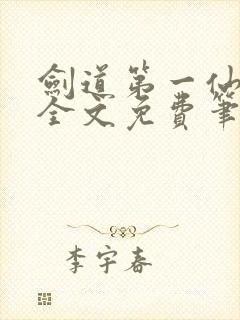 劍道第一仙
全文免費筆
李宇春